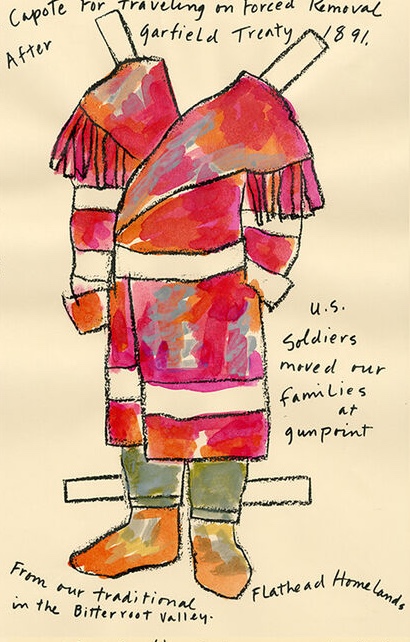 Capote for Traveling on Forced Removal
After Garfield Treaty 1891.
U.S.
Soldiers
moved our
families
at
gunpoint
From our traditional Flathead Homelands
in the Bitterroot Valley.